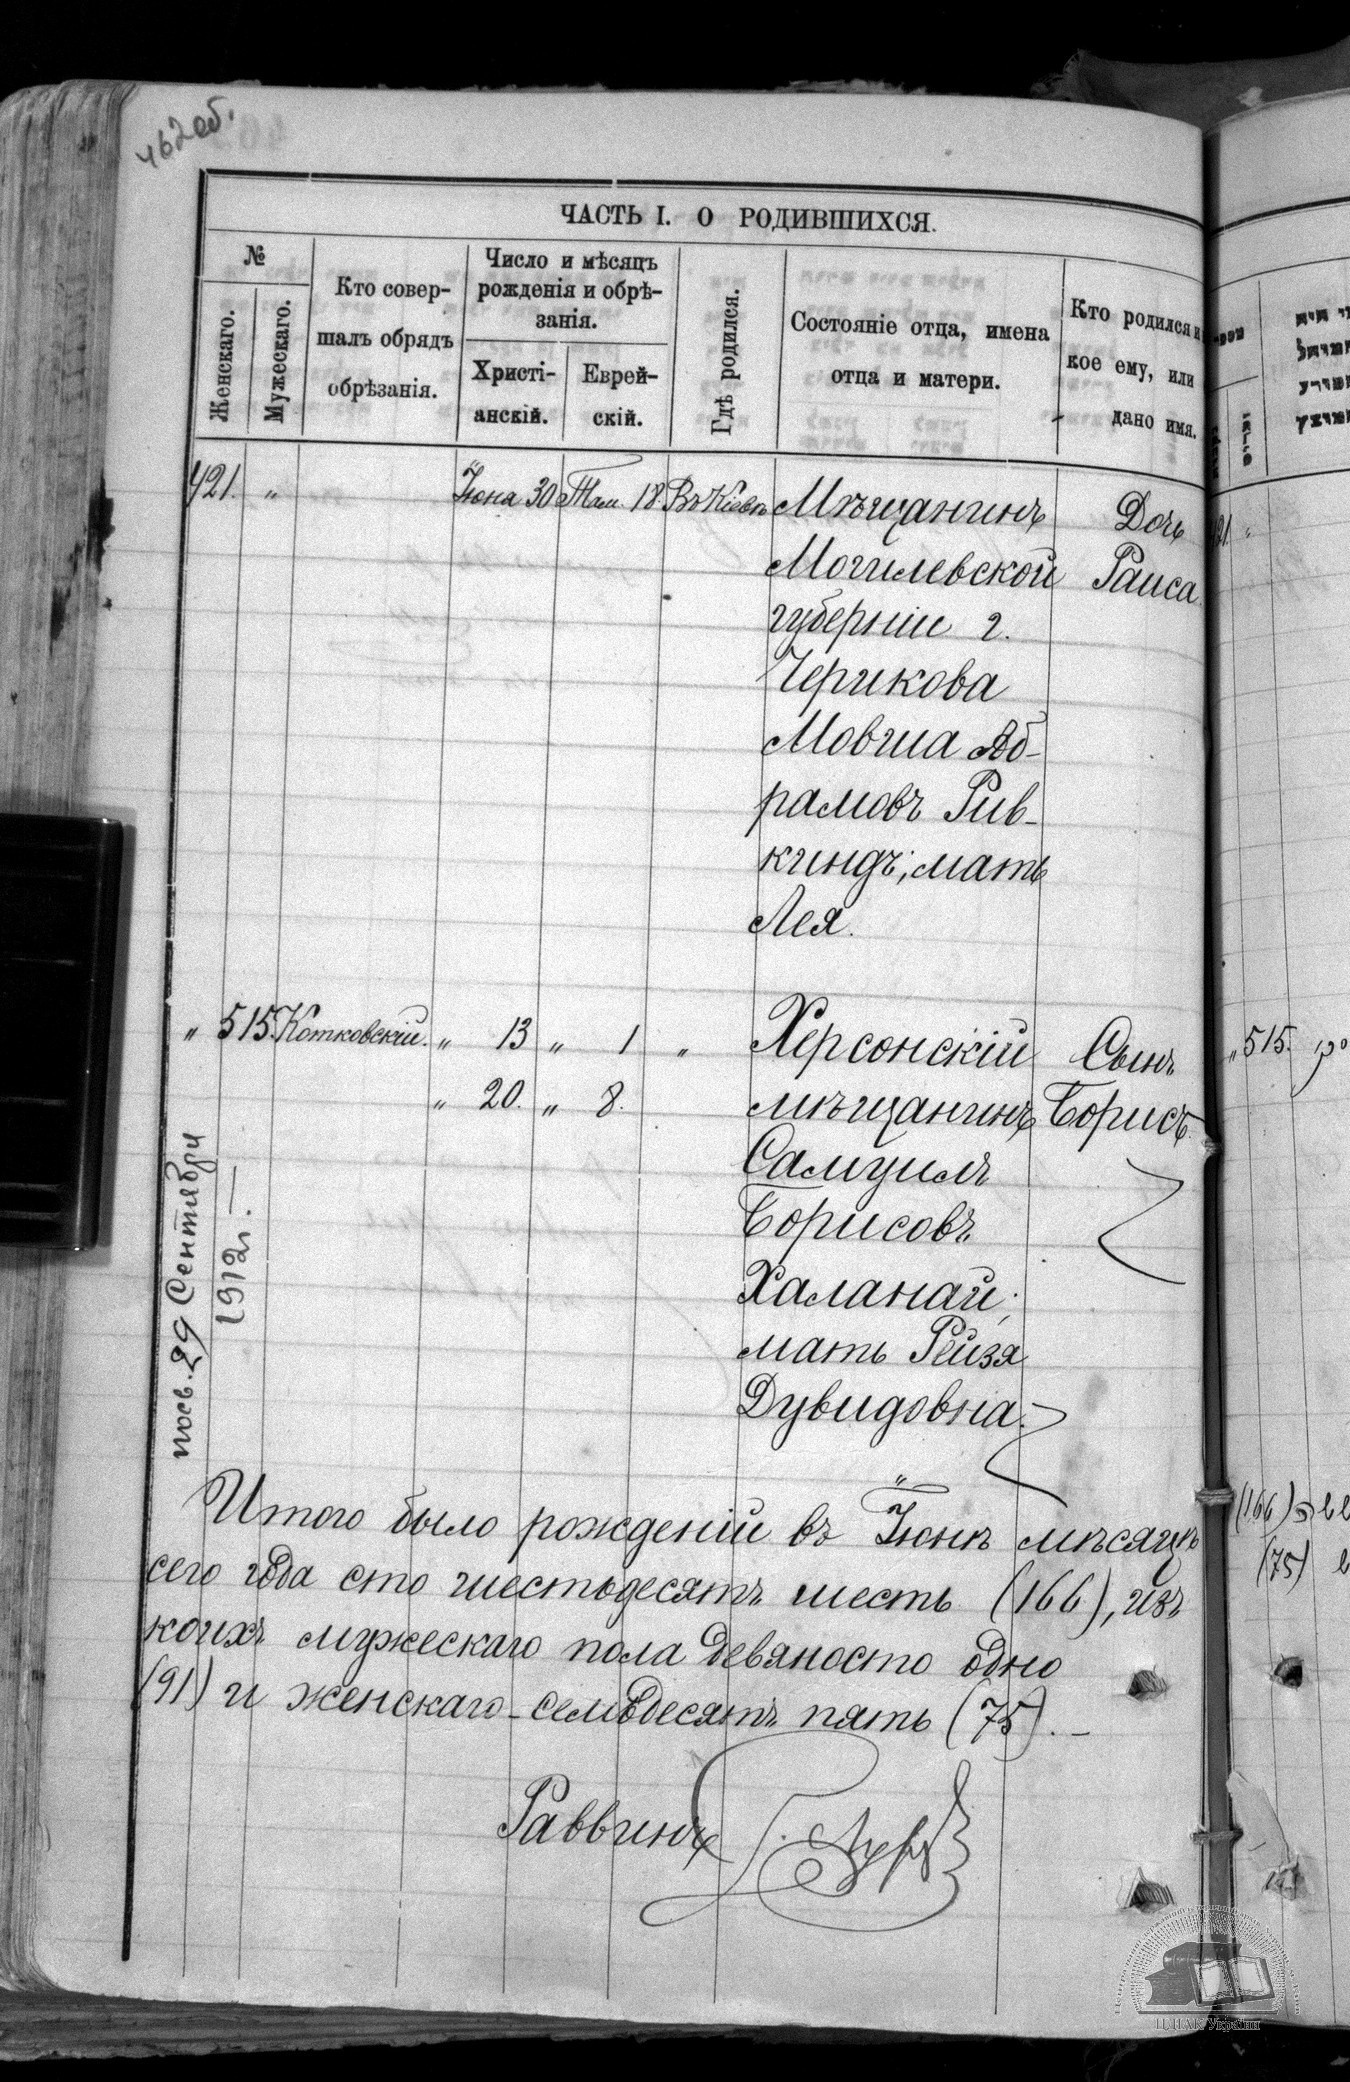 462об.
ЧАСТЬ I. О РОДИВШИХСЯ.
№
Женскаго.
Мужескаго.
Кто совер-
шалъ обрядъ
обрѣзанія.
Число и мѣсяцъ
рожденія и обрѣ-
занія.
Христі-
анскій.
Еврей-
скій.
Гдѣ родился.
Состояніе отца, имена
отца и матери.
Кто родился и
кое ему, или
дано имя.
421. " Іюня 30 Там. 18. Въ Кіевѣ Мѣщанинъ Дочь
Могилевской Раиса.
губерніи г.
Черикова
Мовша Аб-
рамовъ Рив-
киндъ; мать
Лея.
" 515. Котковскій. " 13 " 1 " Херсонскій Сынъ
" 20. " 8. мѣщанинъ Борисъ.
Самуилъ
Борисовъ
Халанай;
мать Рейзя
Дувидовна.
посв. 29 Сентября
1912 г. —
Итого было рожденій въ Іюнѣ мѣсяцѣ
сего года сто шестьдесятъ шесть (166), изъ
коихъ мужескаго пола девяносто одно
(91) и женскаго - семьдесятъ пять (75). —
Раввинъ
"515.
(166)
(75)
ЦДІАК України